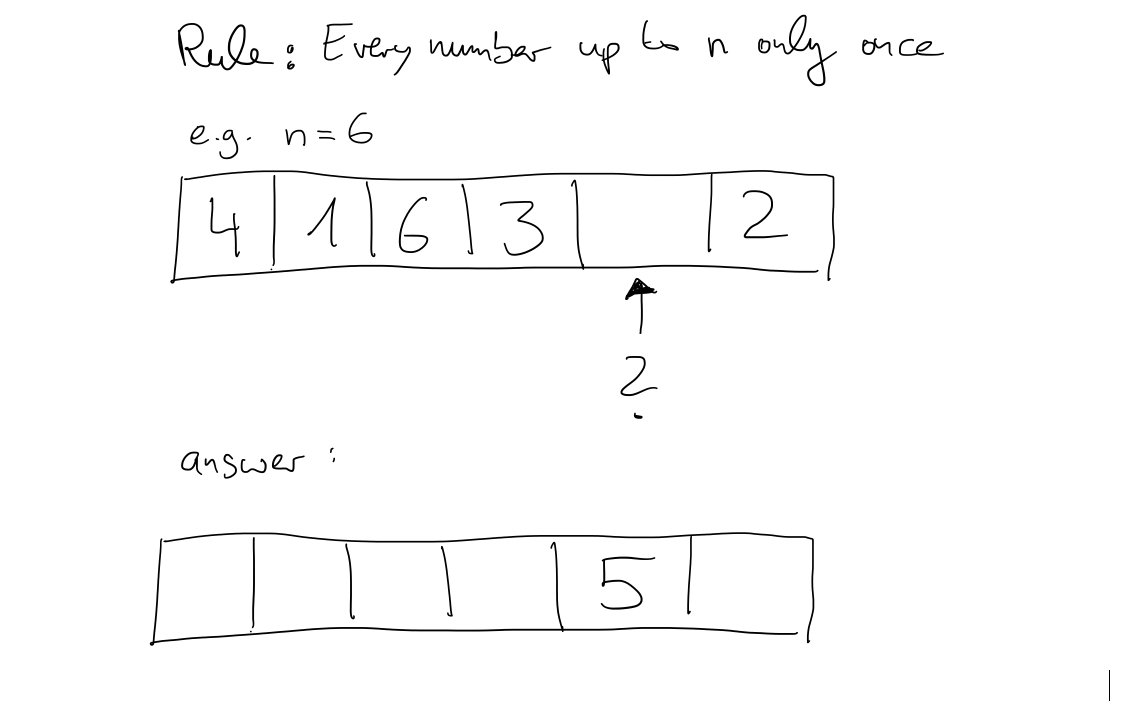 Rule: Every number up to n only once
e.g. n=6
4 1 6 3 2
?
answer:
5